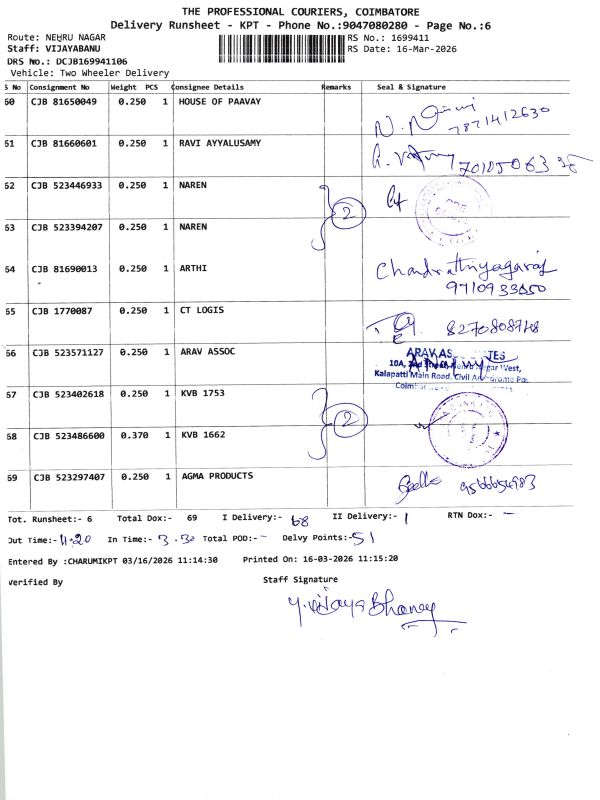 THE PROFESSIONAL COURIERS, COIMBATORE
Delivery Runsheet - KPT - Phone No.:9047080280 - Page No.:6
Route: NEHRU NAGAR
RS No.: 1699411
Staff: VIJAYABANU
RS Date: 16-Mar-2026
DRS No.: DCJB169941106
Vehicle: Two Wheeler Delivery
S No Consignment No Weight PCS Consignee Details Remarks Seal & Signature
60 CJB 81650049 0.250 1 HOUSE OF PAAVAY
7871412630
61 CJB 81660601 0.250 1 RAVI AYYALUSAMY
62 CJB 523446933 0.250 1 NAREN
2
63 CJB 523394207 0.250 1 NAREN
64 CJB 81690013 0.250 1 ARTHI Chandrathiyagaraj
9710933050
65 CJB 1770087 0.250 1 CT LOGIS
66 CJB 523571127 0.250 1 ARAV ASSOC
10A, Nehru Nagar West,
Kalapatti Main Road, Civil Aerodrome Pos
67 CJB 523402618 0.250 1 KVB 1753
2
68 CJB 523486600 0.370 1 KVB 1662
69 CJB 523297407 0.250 1 AGMA PRODUCTS
Tot. Runsheet:- 6 Total Dox:- 69 I Delivery:- 68 II Delivery:- 1 RTN Dox:- -
Out Time:- 11.20 In Time:- 3.30 Total POD:- - Delvy Points:- 51
Entered By :CHARUMIKPT 03/16/2026 11:14:30 Printed On: 16-03-2026 11:15:20
Verified By Staff Signature
Y.Vijaya Bhanu